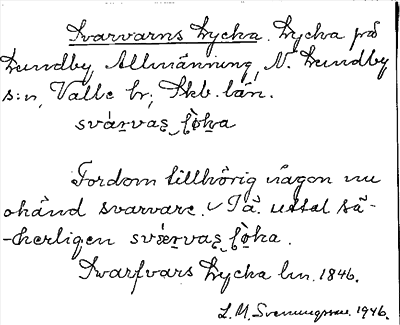 Svarvarns Lycka. Lycka på
Lundby Allmänning, N. Lundby
s:n, Valle hr, Skb. län.
svárvas lỳka
Fordom tillhörig någon nu
okänd svarvare. Tä. uttal sä-
-kerligen svárvas lỳka.
Svarfvars Lycka lm. 1846.
L. M. Svenungsson. 1946.